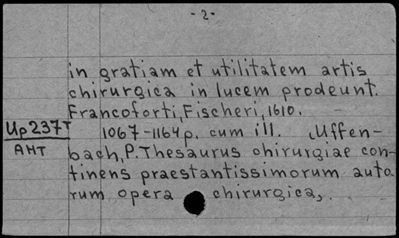 - 2 -
in gratiam et utilitatem artis
chirurgica in lucem prodeunt.
Francoforti, Fischeri, 1610.
Up 237T
1067-1164 p. cum ill. Uffen-
AHT
bach, P. Thesaurus chirurgiae con-
tinens praestantissimorum auto
rum opera chirurgica,.